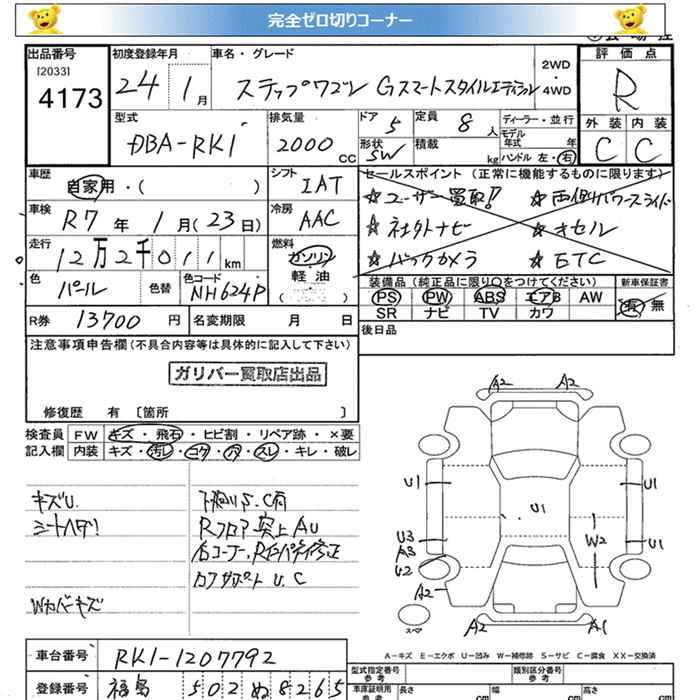 完全ゼロ切りコーナー
出品番号
[2033]
4173
初度登録年月
24 1月
車名・グレード
ステップワゴン Gスマートスタイルエディション
2WD
・4WD
評価点
R
外装 内装
C C
型式
DBA-RK1
排気量
2000 CC
ドア 5
定員 8 人
形状 SW
積載 kg
ディーラー・並行
モデル年式 年
ハンドル 左・右
車歴
自家用・( )
シフト
IAT
車検
R7年1月(23日)
冷房
AAC
走行
12万2千011km
燃料
ガソリン
軽油
( )
色
パール
色替
色コード
NH624P
セールスポイント (正常に機能するものに限ります)
☆ユーザー買取!! ☆両側パワースライド
☆社外ナビ ☆オセル
☆バックカメラ ☆ETC
装備品(純正品に限り○をつけてください)
新車保証書
PS PW ABS エアB AW
有・無
SR ナビ TV カワ
R券 13700円
名変期限 月 日
後日品
注意事項申告欄(不具合内容等は具体的に記入して下さい)
ガリバー買取店出品
修復歴 有 〔箇所 〕
検査員
記入欄
FW キズ・飛石・ヒビ割・リペア跡・×要
内装 キズ・汚レ・コゲ・穴・スレ・キレ・破レ
キズU.
シートハゲ
Wカバーキズ
下廻りS.C有
Rフロア突上AU
カフサポートU.C
A2 A2
U1 U1 U1
U3
A3
U2
W2 U1
A2
スペア
A2 A1
A-キズ E-エクボ U-凹み W-補修跡 S-サビ C-腐食 XX-交換済
車台番号
RK1-1207792
登録番号
福島 502 ぬ 8265
型式指定番号
参考
類別区分番号
参考
車庫証明用
参考
長さ cm
幅 cm
高さ cm